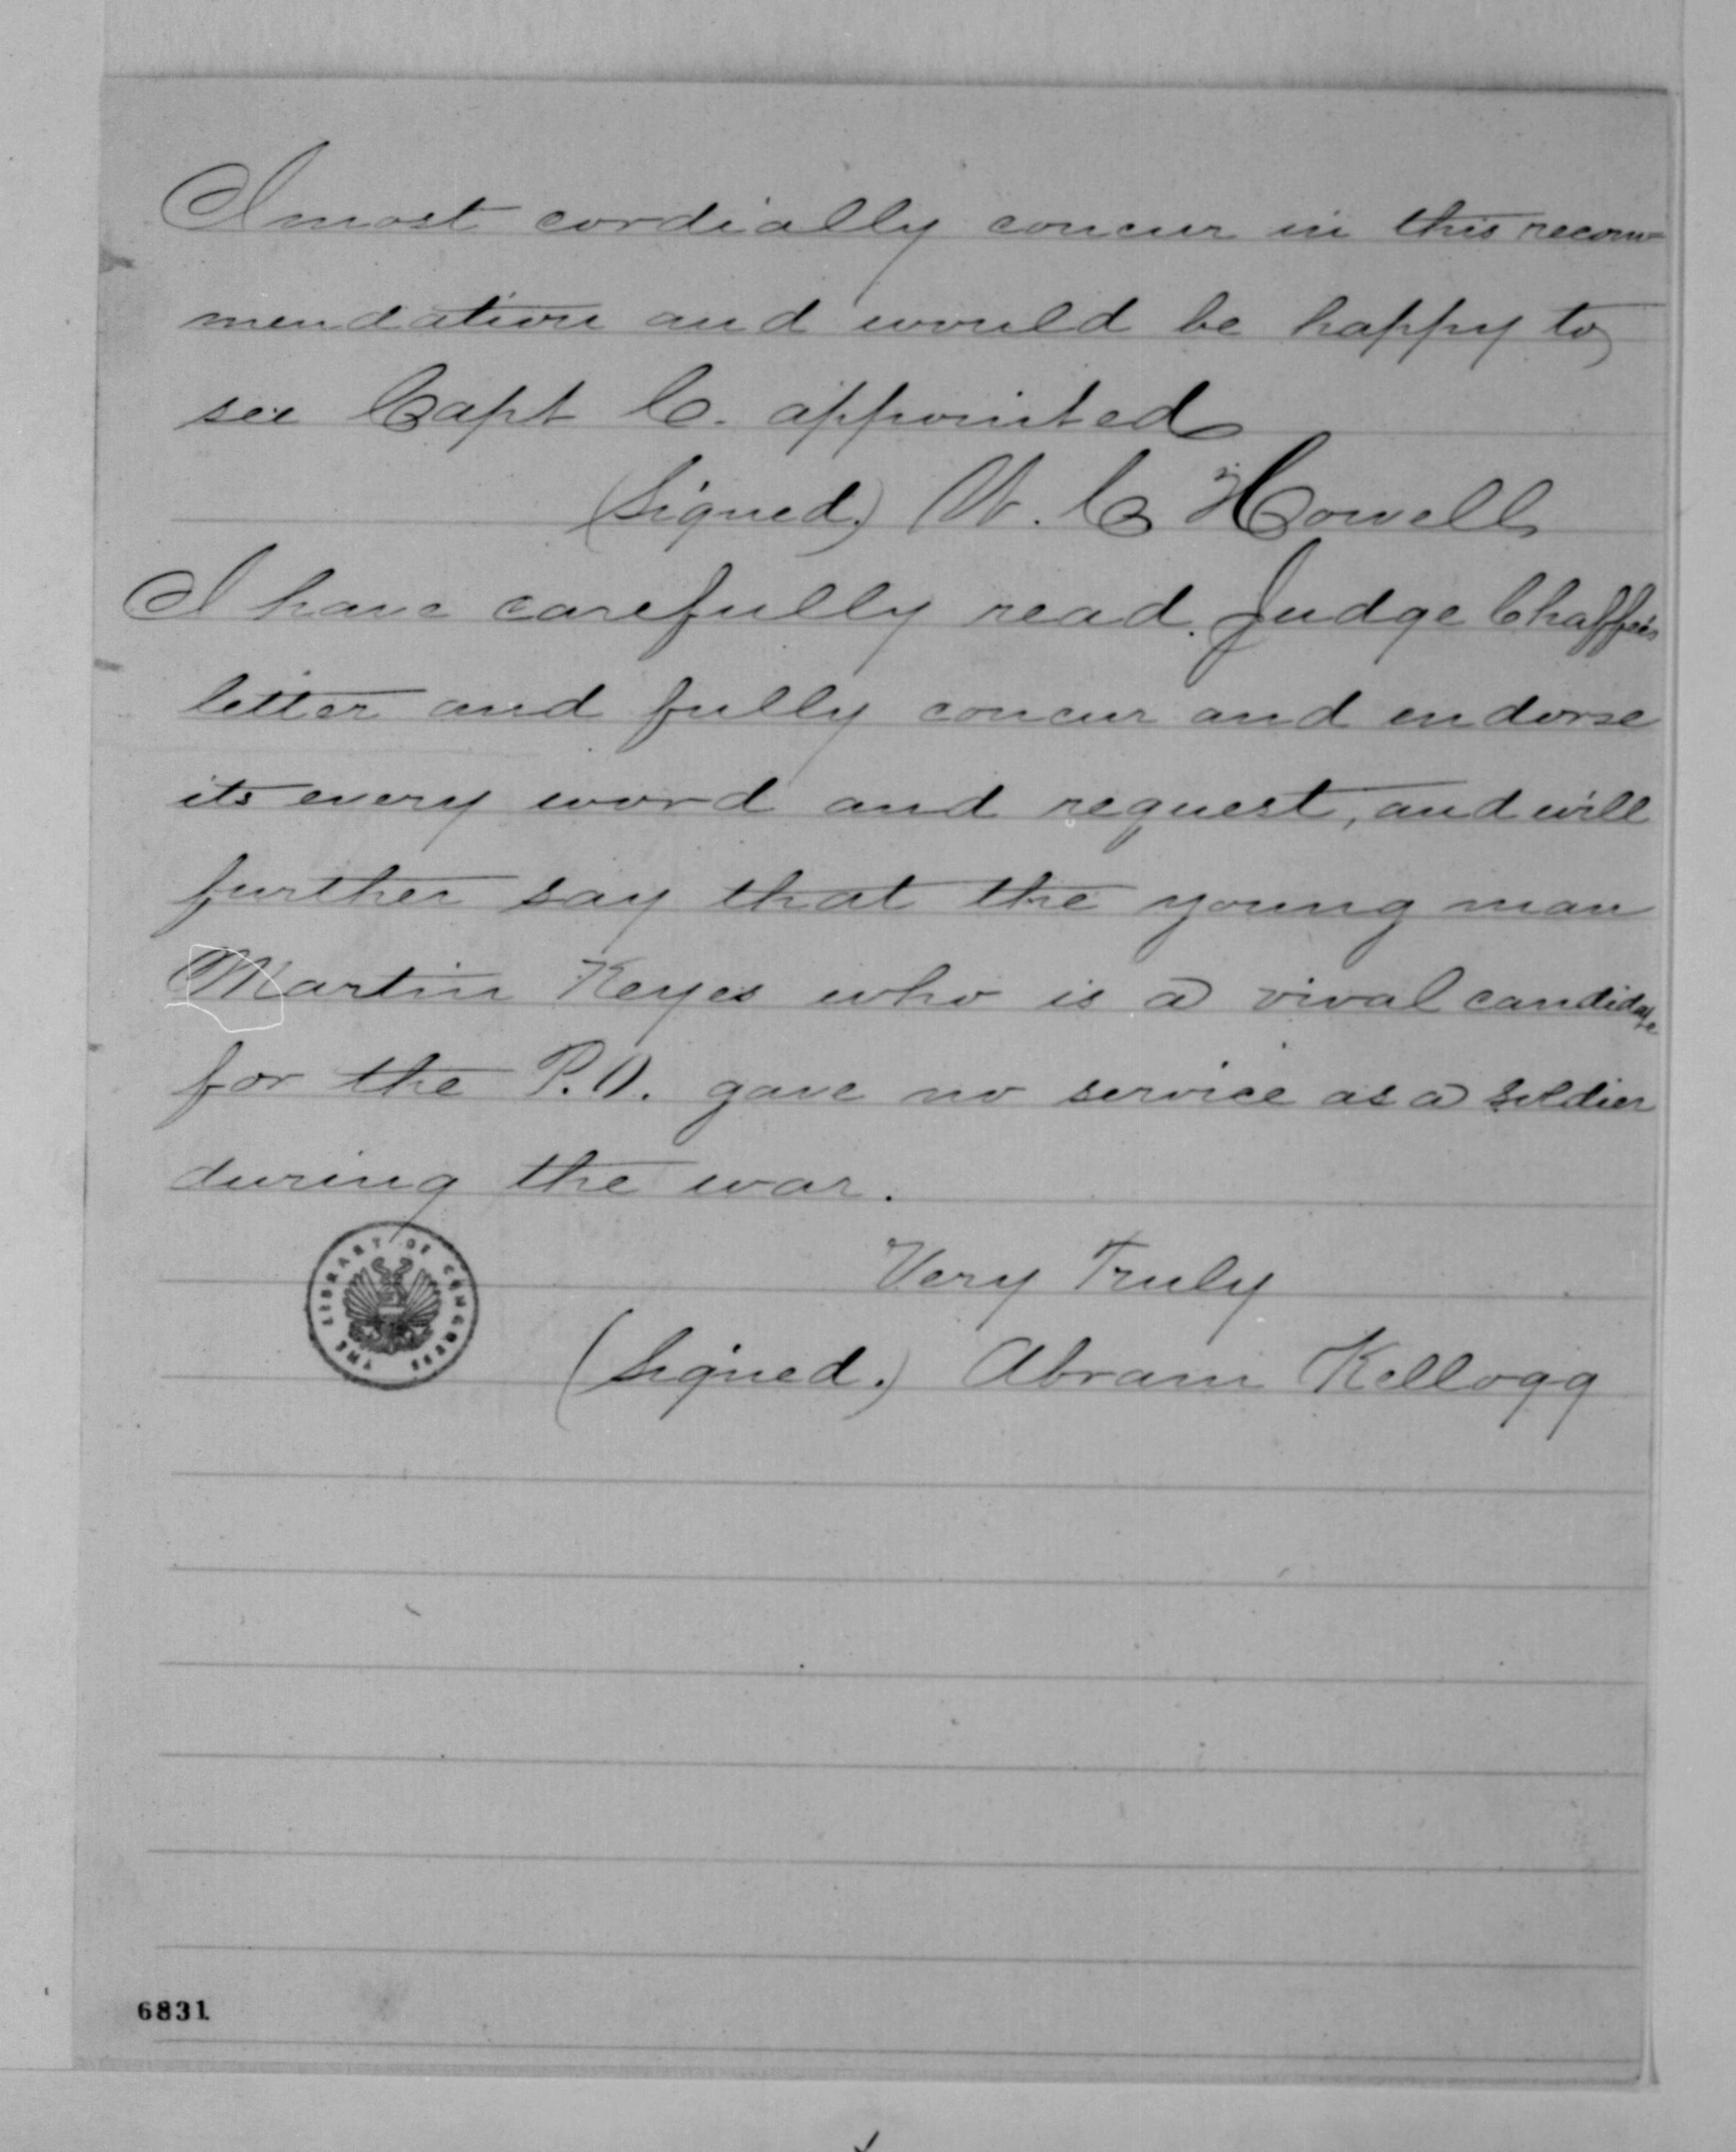 I most cordially concur in this recom-
mendation and would be happy to
see Capt C. appointed
(Signed.) W. C Howell
I have carefully read. Judge Chaffee's
letter and fully concur and endorse
its every word and request, and will
further say that the young man
Martin Keyes who is a rival candidate
for the P.O. gave no service as a soldier
during the war.
THE LIBRARY OF CONGRESS
Very Truly
(Signed.) Abram Kellogg
6831